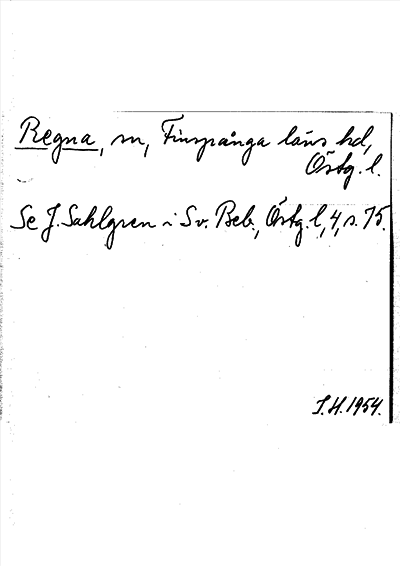 Regna, sn, Finspånga läns hd,
Östg. l.
Se J. Sahlgren i Sv. Beb., Östg. l, 4, s. 75.
S.H. 1954.